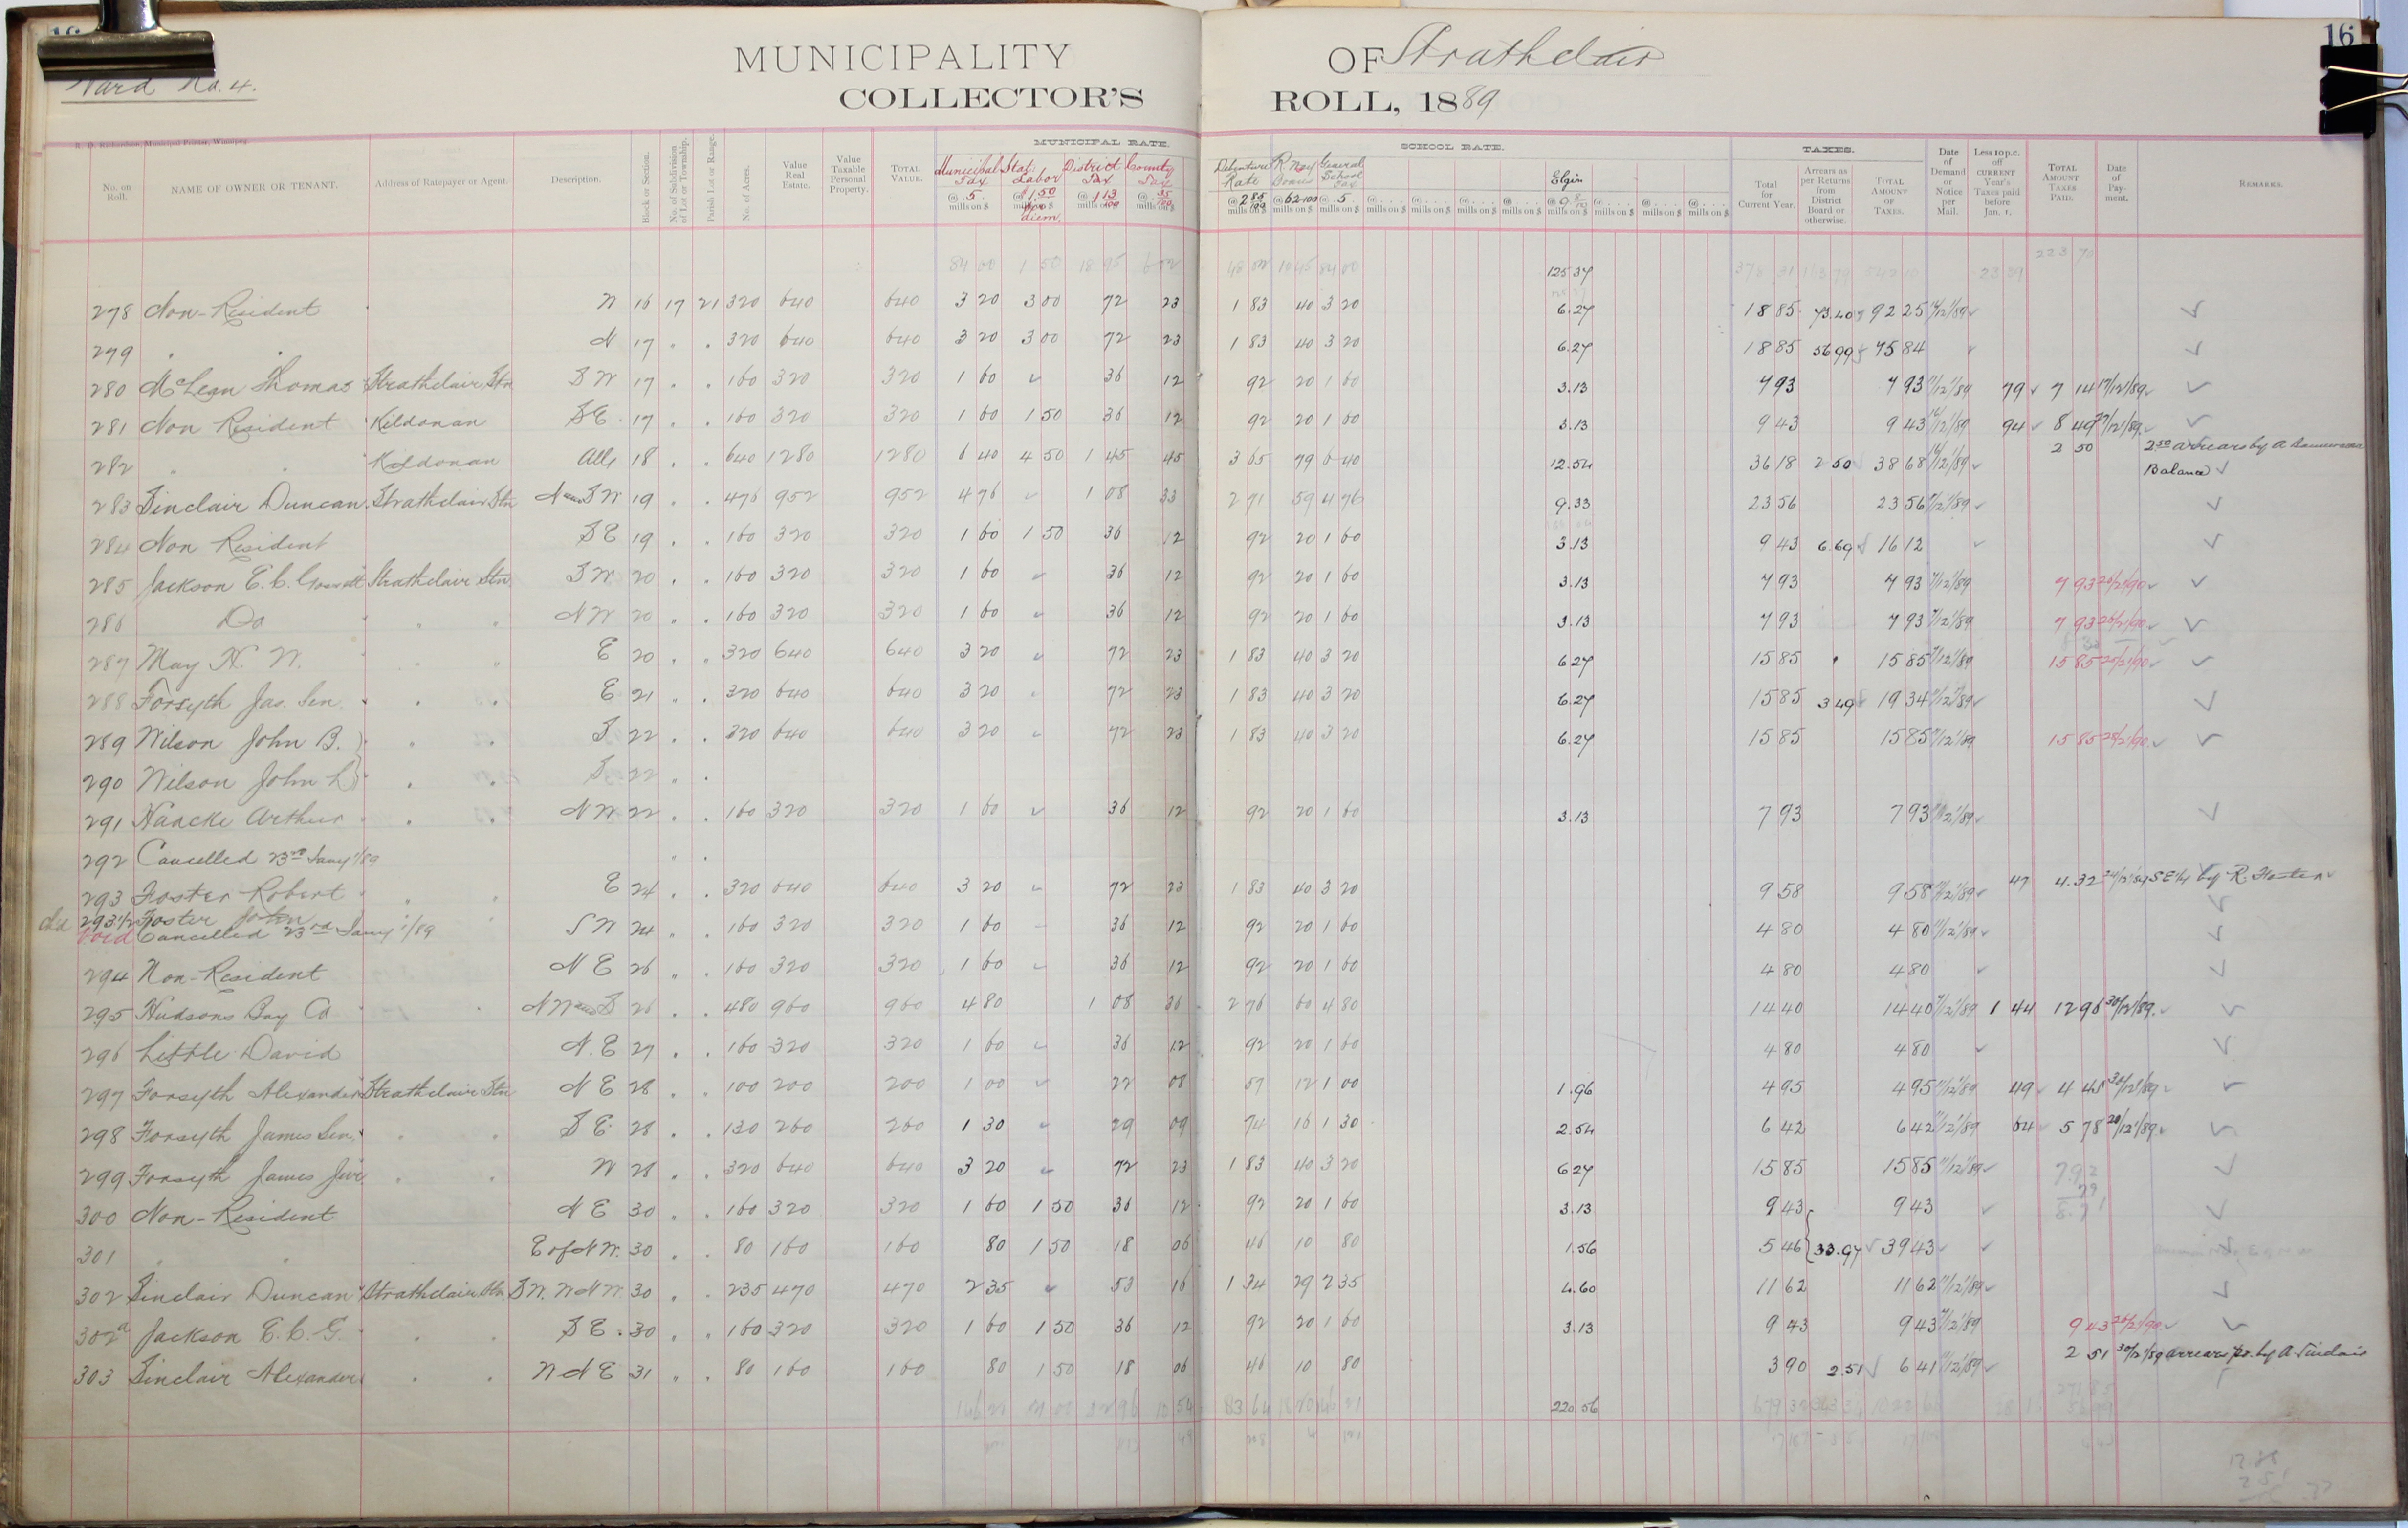 16
Ward No. 4.
MUNICIPALITY OF Strathclair
COLLECTOR'S ROLL, 1889
R. D. Richardson, Municipal Printer, Winnipeg
No. on Roll. NAME OF OWNER OR TENANT. Address of Ratepayer or Agent. Description. Block or Section. No. of Subdivision of Lot or Township. Parish Lot or Range. No. of Acres. Value Real Estate. Value Taxable Personal Property. TOTAL VALUE. MUNICIPAL RATE. Municipal Tax @ .5. mills on $ Stat. Labor @ $1.50 per diem. District Tax @ 1 13/100 mills on $ County Tax @ 35/100 mills on $ Debenture Rate @ 2 85/100 mills on $ R. Way Bonus @ 62/100 mills on $ General School Tax @ .5 mills on $ SCHOOL RATE. Elgin @ 9.8/10 mills on $ TAXES. Total for Current Year. Arrears as per Returns from District Board or otherwise. TOTAL AMOUNT OF TAXES. Date of Demand or Notice per Mail. Less 10 p.c. off CURRENT Year's Taxes paid before Jan. 1. TOTAL AMOUNT TAXES PAID. Date of Payment. REMARKS.
84 00 1 50 18 95 6 02 48 00 10 45 84 00 125 37 223 70
278 Non-Resident W 16 17 21 320 640 640 3 20 3 00 72 23 1 83 40 3 20 6.27 18 85 73.40 92 25 11/12/89
279 " " N 17 " " 320 640 640 3 20 3 00 72 23 1 83 40 3 20 6.27 18 85 56 99 75 84
280 McLean Thomas Strathclair Stn S W 17 " " 160 320 320 1 60 36 12 92 20 1 60 3.13 7 93 7 93 11/12/89 79 7 14 17/12/89
281 Non Resident Kildonan S E 17 " " 160 320 320 1 60 1 50 36 12 92 20 1 60 3.13 9 43 9 43 16/12/89 94 8 49 27/12/89
282 " " Kildonan All 18 " " 640 1280 1280 6 40 4 50 1 45 45 3 65 79 6 40 12.54 36 18 2 50 38 68 16/12/89 2 50 2.50 arrears by A Balance
283 Sinclair Duncan Strathclair Stn N and S W 19 " " 476 952 952 4 76 1 08 33 2 71 59 4 76 9.33 23 56 23 56 11/12/89
284 Non Resident S E 19 " " 160 320 320 1 60 1 50 36 12 92 20 1 60 3.13 9 43 6.69 16 12
285 Jackson E. C. Strathclair Stn S W 20 " " 160 320 320 1 60 36 12 92 20 1 60 3.13 7 93 7 93 11/12/89 7 93 25/2/90
286 Do " " N W 20 " " 160 320 320 1 60 36 12 92 20 1 60 3.13 7 93 7 93 11/12/89 7 93 25/2/90
287 May H. W. " " E 20 " " 320 640 640 3 20 72 23 1 83 40 3 20 6 27 15 85 15 85 11/12/89 15 85 25/2/90
288 Forsyth Jas. Sen. " " E 21 " " 320 640 640 3 20 72 23 1 83 40 3 20 6.27 15 85 3 49 19 34 11/12/89
289 Wilson John B. " " S 22 " " 320 640 640 3 20 72 23 1 83 40 3 20 6.27 15 85 15 85 11/12/89 15 85 28/2/90
290 Wilson John L " " S 22 " "
291 Hancke Arthur " " N W 22 " " 160 320 320 1 60 36 12 92 20 1 60 3.13 7 93 7 93 11/12/89
292 Cancelled 23rd Jany 1/89 " "
293 Foster Robert " " E 24 " " 320 640 640 3 20 72 23 1 83 40 3 20 9 58 9 58 11/12/89 47 4.32 S E 1/4 by R. Foster
293 1/2 Foster John S W 24 " " 160 320 320 1 60 36 12 92 20 1 60 4 80 4 80 11/12/89
void Cancelled 23rd Jany 1/89
294 Non-Resident N E 26 " " 160 320 320 1 60 36 12 92 20 1 60 4 80 4 80
295 Hudsons Bay Co N W and S 26 " " 480 960 960 4 80 1 08 36 2 76 60 4 80 14 40 14 40 11/12/89 1 44 12 96 30/12/89
296 Little David N. E 27 " " 160 320 320 1 60 36 12 92 20 1 60 4 80 4 80
297 Forsyth Alexander Strathclair Stn N E 28 " " 100 200 200 1 00 22 08 57 12 1 00 1.96 4 95 4 95 11/12/89 49 4 45 30/12/89
298 Forsyth James Sen. " " S E 28 " " 130 260 260 1 30 29 09 74 16 1 30 2.54 6 42 6 42 11/12/89 64 5 78 20/12/89
299 Forsyth James Jun " " W 28 " " 320 640 640 3 20 72 23 1 83 40 3 20 6 27 15 85 15 85 11/12/89 7.92
79
300 Non-Resident N E 30 " " 160 320 320 1 60 1 50 36 12 92 20 1 60 3.13 9 43 9 43 8.71
301 " " E of N W. 30 " " 80 160 160 80 1 50 18 06 46 10 80 1.56 5 46 33.97 39 43
302 Sinclair Duncan Strathclair Stn S W. W N W. 30 " " 235 470 470 2 35 53 16 1 34 29 2 35 4.60 11 62 11 62 11/12/89
302a Jackson E. C. G. " " S E. 30 " " 160 320 320 1 60 1 50 36 12 92 20 1 60 3.13 9 43 9 43 11/12/89 9 43 25/2/90
303 Sinclair Alexander " " W N E 31 " " 80 160 160 80 1 50 18 06 46 10 80 3 90 2.51 6 41 11/12/89 2 51 30/12/89 arrears pd. by A Sinclair
220.56